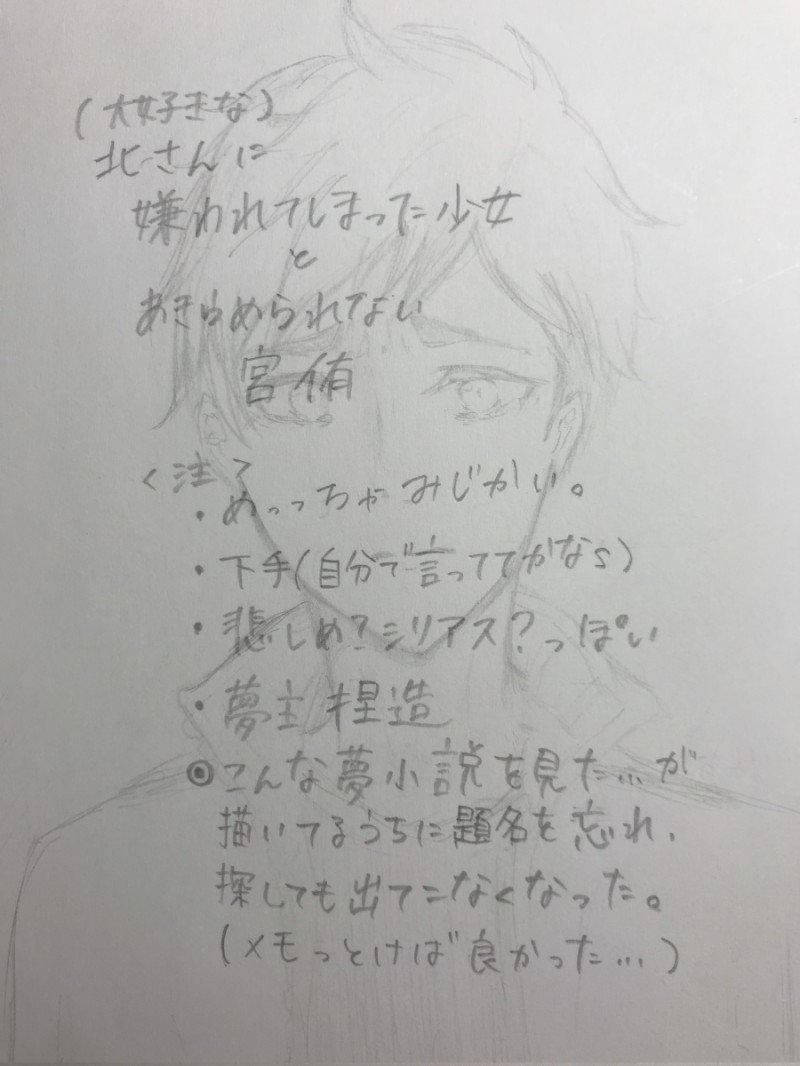 (大好きな)
北さんに
嫌われてしまった少女
と
あきらめられない
宮侑
<注>
・めっっちゃみじかい。
・下手(自分で言っててかなs)
・悲しめ?シリアス?っぽい
・夢主捏造
◎こんな夢小説を見た...が
描いてるうちに題名を忘れ、
探しても出てこなくなった。
(メモっとけば良かった...)